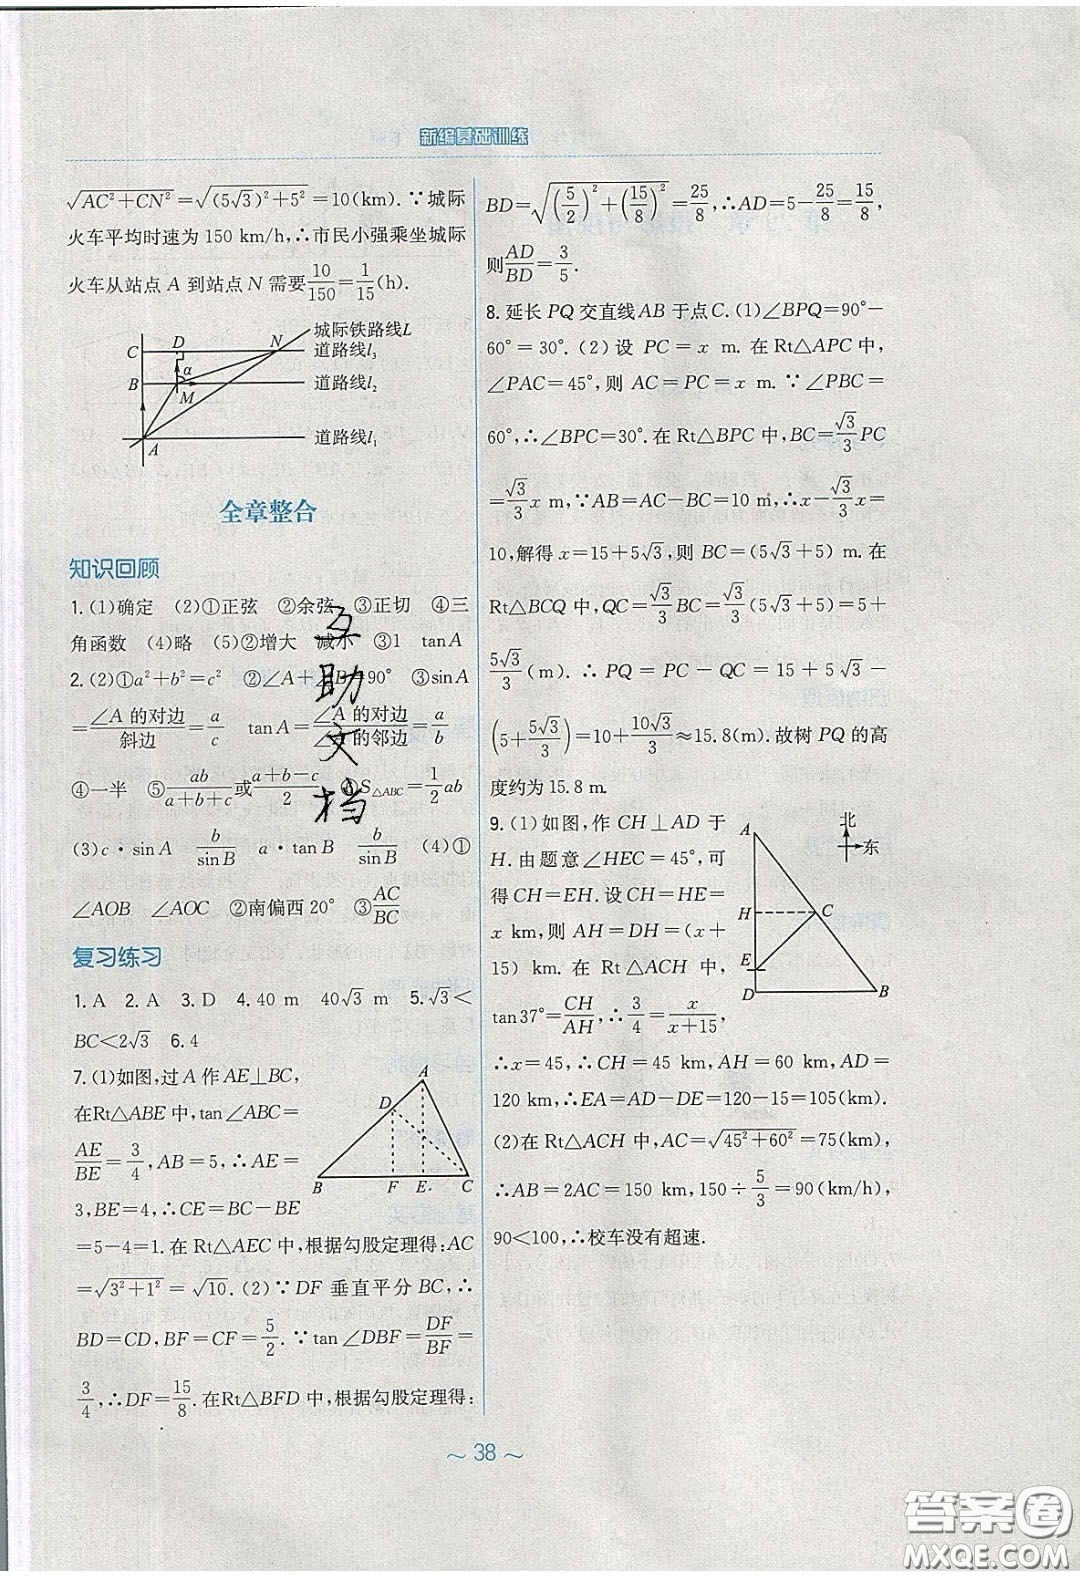 新编基础训练
√(AC²+CN²)=√((5√3)²+5²)=10(km).∵城际
火车平均时速为150 km/h,∴市民小强乘坐城际
火车从站点A到站点N需要10/150=1/15(h).
城际铁路线L
C D N 道路线l₃
α
B M 道路线l₂
A 道路线l₁
全章整合
知识回顾
1.(1)确定 (2)①正弦 ②余弦 ③正切 ④三
角函数 (4)略 (5)②增大 减小 ③1 tanA
2.(2)①a²+b²=c² ②∠A+∠B=90° ③sinA
=∠A的对边/斜边=a/c tanA=∠A的对边/∠A的邻边=a/b
④一半 ⑤ab/(a+b+c)或(a+b-c)/2 ⑥S△ABC=1/2ab
(3)c·sinA b/sinB a·tanB b/sinB (4)①
∠AOB ∠AOC ②南偏西20° ③AC/BC
互助文档
复习练习
1.A 2.A 3.D 4.40 m 40√3 m 5.√3<
BC<2√3 6.4
7.(1)如图,过A作AE⊥BC,
在Rt△ABE中,tan∠ABC=
AE/BE=3/4,AB=5,∴AE=
3,BE=4,∴CE=BC-BE
=5-4=1.在Rt△AEC中,根据勾股定理得:AC
=√(3²+1²)=√10.(2)∵DF垂直平分BC,∴
BD=CD,BF=CF=5/2.∵tan∠DBF=DF/BF=
3/4,∴DF=15/8.在Rt△BFD中,根据勾股定理得:
A
D
B F E C
BD=√((5/2)²+(15/8)²)=25/8,∴AD=5-25/8=15/8,
则AD/BD=3/5.
8.延长PQ交直线AB于点C.(1)∠BPQ=90°-
60°=30°.(2)设PC=x m.在Rt△APC中,
∠PAC=45°,则AC=PC=x m.∵∠PBC=
60°,∴∠BPC=30°.在Rt△BPC中,BC=√3/3PC
=√3/3x m,∵AB=AC-BC=10 m,∴x-√3/3x=
10,解得x=15+5√3,则BC=(5√3+5) m.在
Rt△BCQ中,QC=√3/3BC=√3/3(5√3+5)=5+
5√3/3(m).∴PQ=PC-QC=15+5√3-
(5+5√3/3)=10+10√3/3≈15.8(m).故树PQ的高
度约为15.8 m.
9.(1)如图,作CH⊥AD于
H.由题意∠HEC=45°,可
得CH=EH.设CH=HE=
x km,则AH=DH=(x+
15) km.在Rt△ACH中,
tan37°=CH/AH,∴3/4=x/(x+15),
∴x=45,∴CH=45 km,AH=60 km,AD=
120 km,∴EA=AD-DE=120-15=105(km).
(2)在Rt△ACH中,AC=√(45²+60²)=75(km),
∴AB=2AC=150 km,150÷5/3=90(km/h),
90<100,∴校车没有超速.
A 北
东
H C
E
D B
~ 38 ~
答案圈
MXQE.COM